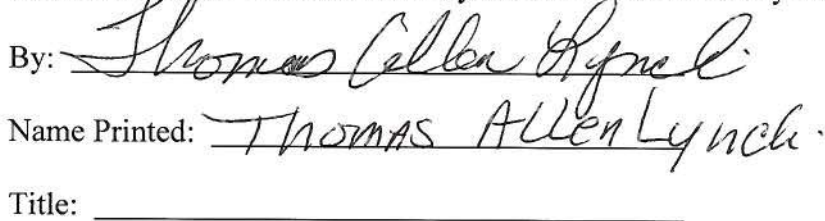 By: Thomas Allen Lynch
Name Printed: Thomas Allen Lynch.
Title: